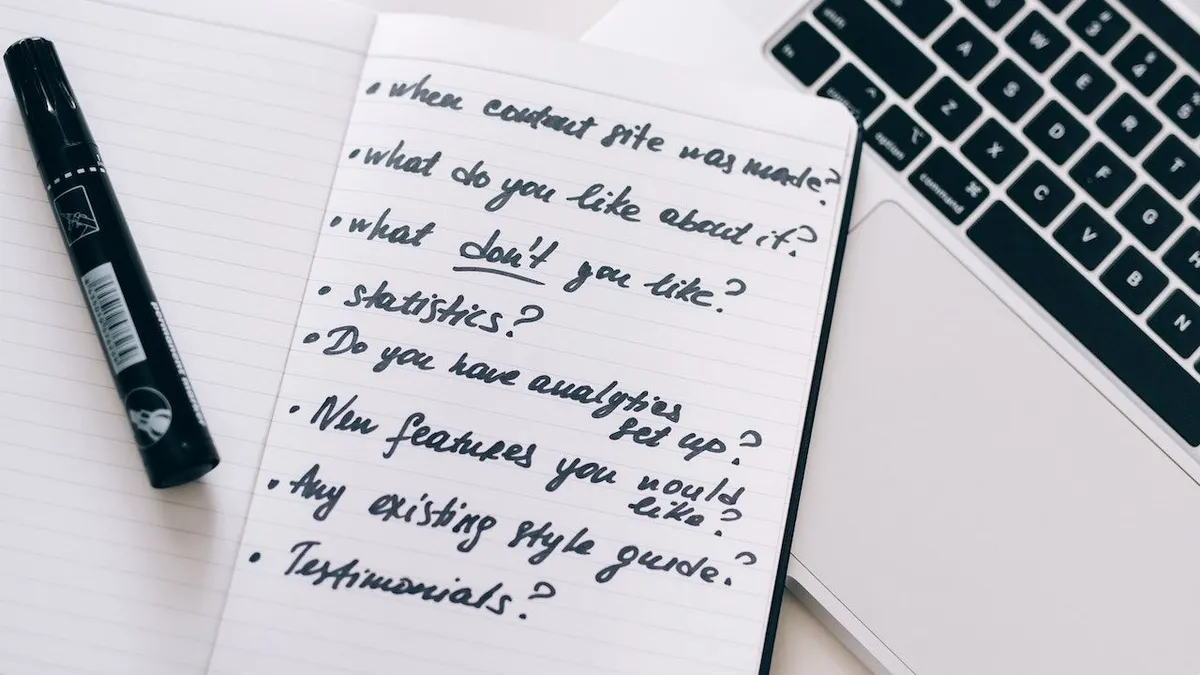 • when content site was made?
• what do you like about it?
• what don't you like?
• statistics?
• Do you have analytics
set up?
• New features you would
like?
• Any existing style guide?
• Testimonials?
shift
fn
^
control
option
command ⌘
A
Z
W
S
X
#
3
E
D
C
4
R
F
V
T
G
B
H
N